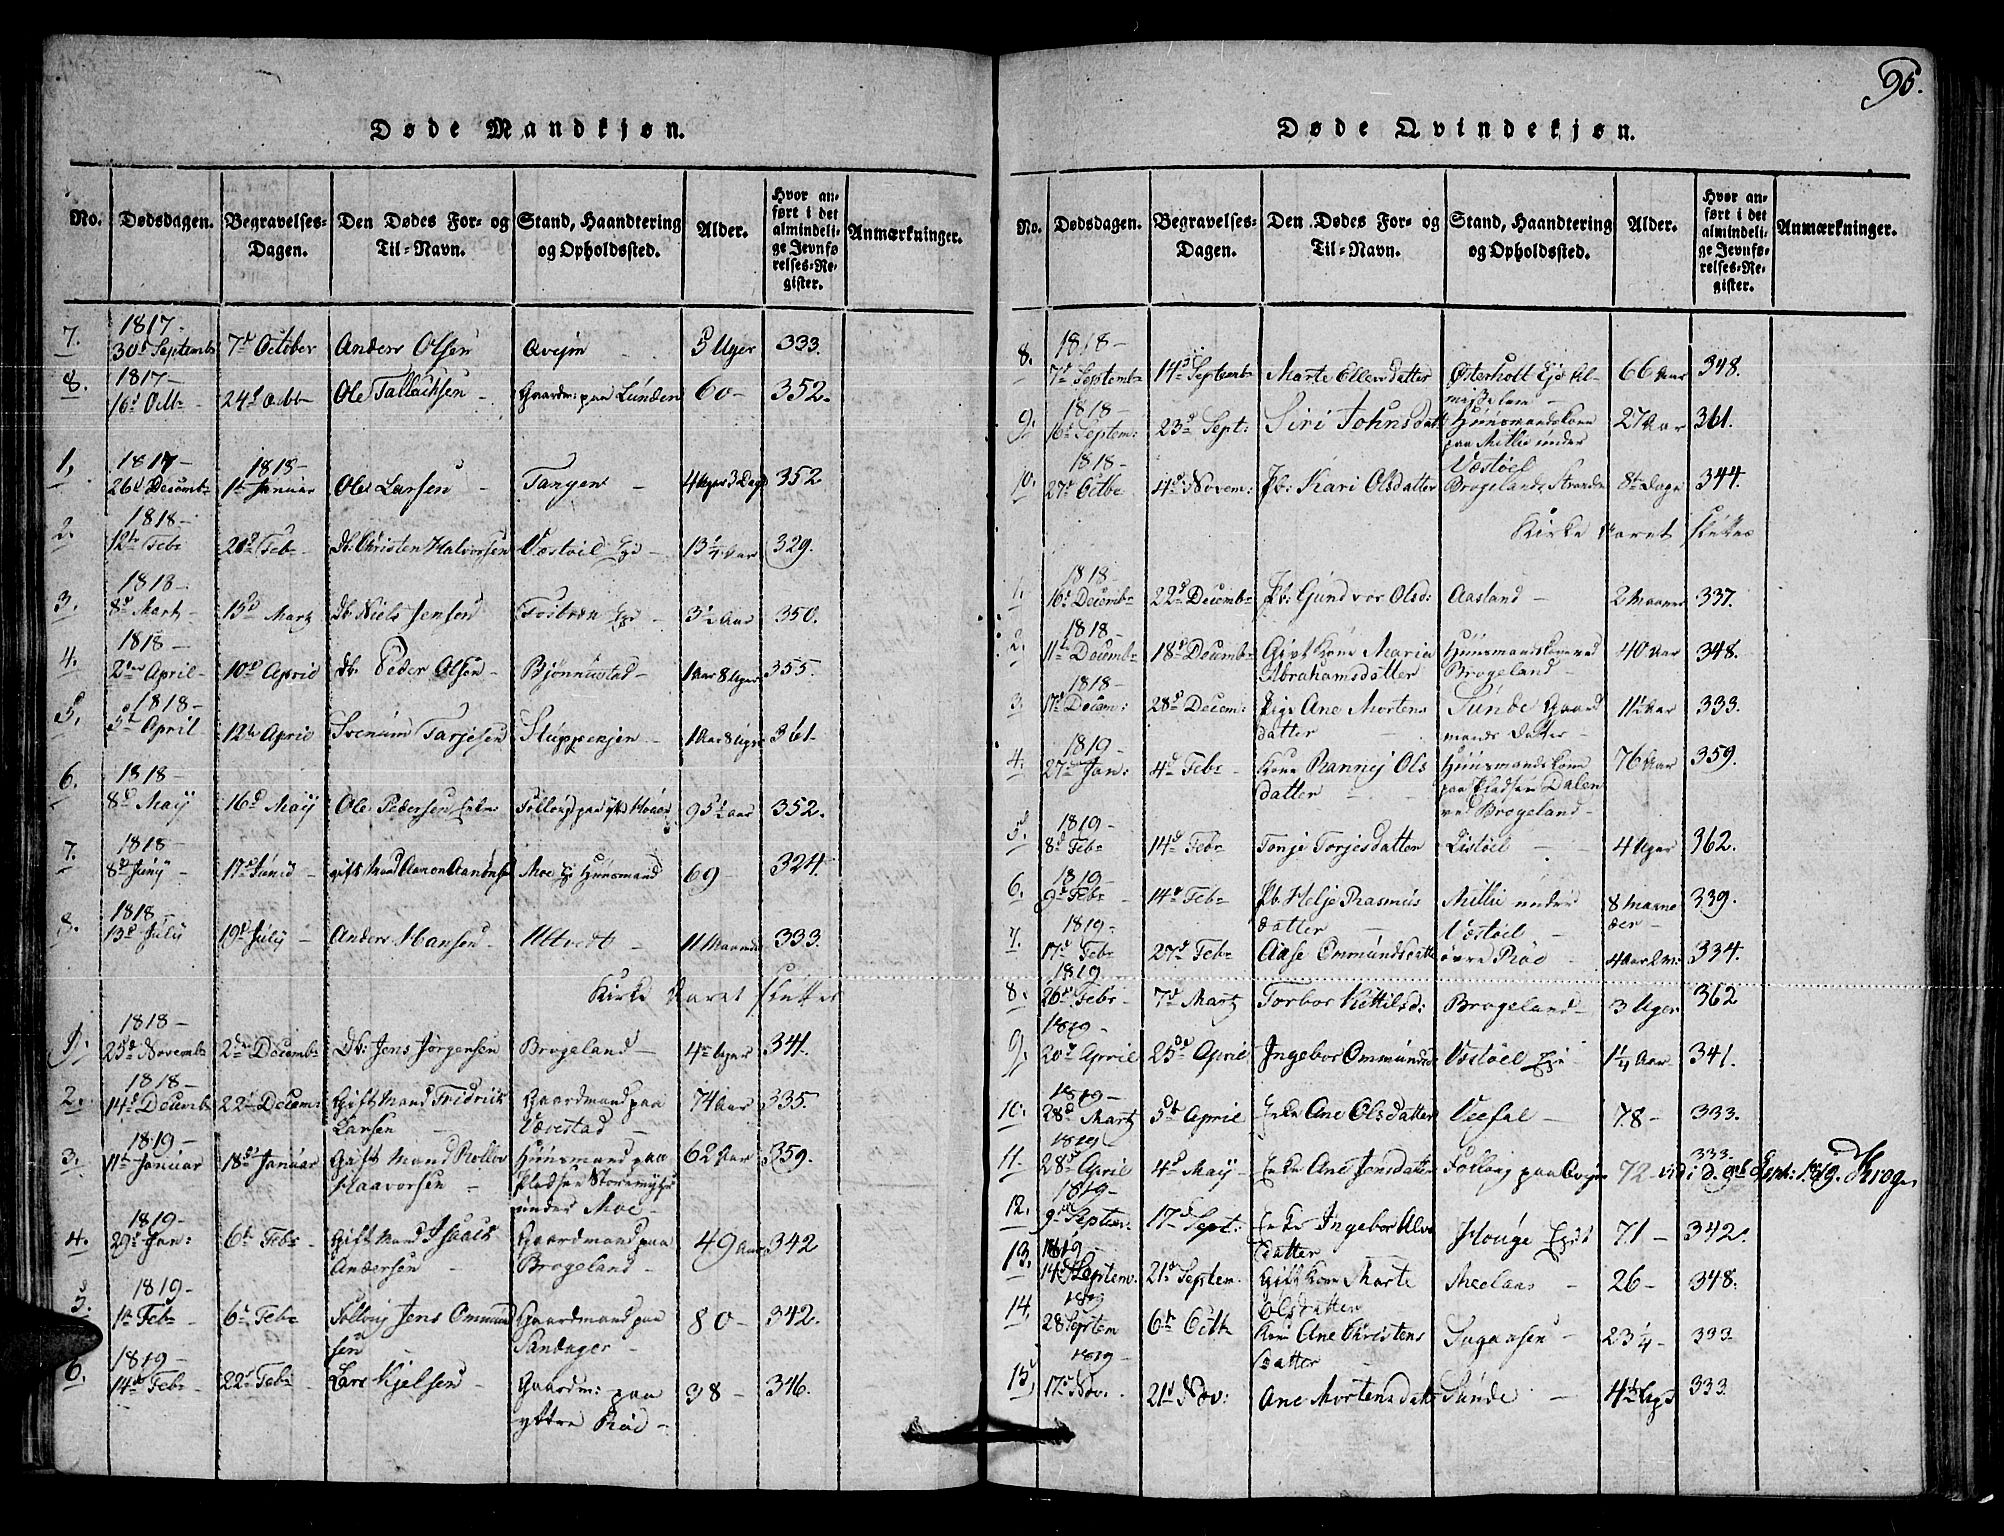 95.
Døde Mandkjøn.
No. Dødsdagen. Begravelses-Dagen. Den Dødes For- og Til-Navn. Stand, Haandtering og Opholdssted. Alder. Hvor anført i det almindelige Jevnførelses-Register. Anmærkninger.
7. 1817- 30d Septembr 7d October Anders Olsen 5 Uger 333.
8. 1817- 16d Octbr 24d Octbr Ole Tallachsen - Gaardm: paa Lunden 60- 352.
1, 1817- 26d Decembr 1818- 1t Januar Ole Larsen - Tangen - 4 Uger 3 Dage 352
2. 1818- 12te Febr 20d Febr Db: Christen Halvorsen Væstøel 13 1/4 Aar 329.
3. 1818- 8d Martz 15d Martz Db Niels Jensen 3 1/2 Aar 350.
4. 1818- 2den April- 10d April Db. Peder Olsen - 1 Aar 8 Uger 355.
5. 1818- 5t April 12te April Svenum Tarjesen 361-
6. 1818- 8d Maÿ 16d Maÿ Ole Pedersen 95 1/2 Aar 352.
7. 1818- 8d Junÿ - 17d Junÿ - gift Mand Moe Huusmand 69- 324.
8. 1818- 13d Julÿ 19d Julÿ - Anders Hansen - Utvedt - 11 Maaneder 333.
Kirke Aaret sluttet
1. 1818- 25d Novembr 2den Decembr Db: Jens Jørgensen Brogeland - 4re Uger 341.
2. 1818- 14d Decembr 22d Decem: Gift Mand Fridrich Larsen - Gaardmand paa Vævestad - 74 Aar 335.
3. 1819- 11te Januar 18de Januar Gift Mand Haavorsen - Huusmand paa Pladsen under Moe - 62 Aar 359.
4. 1819- 29d Jan: 6te Febr - Gift Mand Isaach Andersen - Gaardmand paa Brogeland - 49 Aar 342
5. 1819- 1te Febr - 6te Febr Jens Ommundsen Gaardmand paa Sandager - 80- 342.
6. 1819- 14de Febr - 22d Febr Lars Kjelsen - Gaardm: paa yttre Røed - 38- 346.
Døde Qvindekjøn.
No. Dødsdagen. Begravelses-Dagen. Den Dødes For- og Til-Navn. Stand, Haandtering og Opholdssted. Alder. Hvor anført i det almindelige Jevnførelses-Register. Anmærkninger.
8. 1818- 7d Septembr 14d Septembr Marte Ellensdatter Østerholt 66 Aar 348.
9. 1818- 16d Septem: 23d Sept: Siri Johnsdatt Huusmandskone paa Mitlie under Væstøel 27 Aar 361.
10. 1818- 27d Octbr 4d Novem: Pb: Kari Olsdatter Brogelands Strande 8te Dage 344.
Kirke Aaret sluttes
1. 1818- 16d Decembr 22d Decembr Pb: Gundvor Olsd: Aasland - 2 Maaner 337.
2. 1818- 11te Decembr 18d Decembr Gift Kone Maria Abrahamsdatter Huusmandskone ved Brogeland - 40 Aar 348.
3. 1818- 17d Decem: 28d Decem: Pige Ane Mortensdatter - Sunde Gaardmands Datter - 11 1/2 Aar 333.
4. 1819- 27d Jan: 4d Febr - Kone Rannej Olsdatter - Huusmandskone paa Pladsen Dalen ved Brogeland - 76 Aar 359.
5. 1819- 8d Febr 14d Febr Tonje Torjesdatter Listøel - 4 Uger 362.
6. 1819- 9d Febr - 14de Febr Pb. Helje Rasmusdatter - Mitlie under Væstøel - 8 Maaneder - 339.
7. 1819- 17d Febr 27d Febr Aase Ommundsdatt øvre Røed - 4 Aar 2 M: 334.
8. 1819- 26d Febr - 7d Martz Torbor Kittilsd: Brogeland - 3 Uger 362
9. 1819- 20d April 25de April Ingebor Ommundsd Væstøel 1 1/4 Aar 341.
10. 1819- 28d Martz 5te April Enke Ane Olsdatter - 78- 333.
11. 1819- 28d April 4d Maÿ - Enke Ane Jensdatter 72- 333. vidi d. 9de Sept: 1819. Krog
12. 1819- 9d Septem: 17d Sept: Enke Ingebor datter Houge 71- 342.
13. 1819 14d Septem. 21d Septem. Gift Kone Marte Olsdatter - 26- 348.
14. 1819 28 Septem 6te Octbr Kone Ane Christensdatter - 23 1/4- 333.
15, 1819- 17d Nov. 21d Nov: Ane Mortensdatt Sunde - 333.